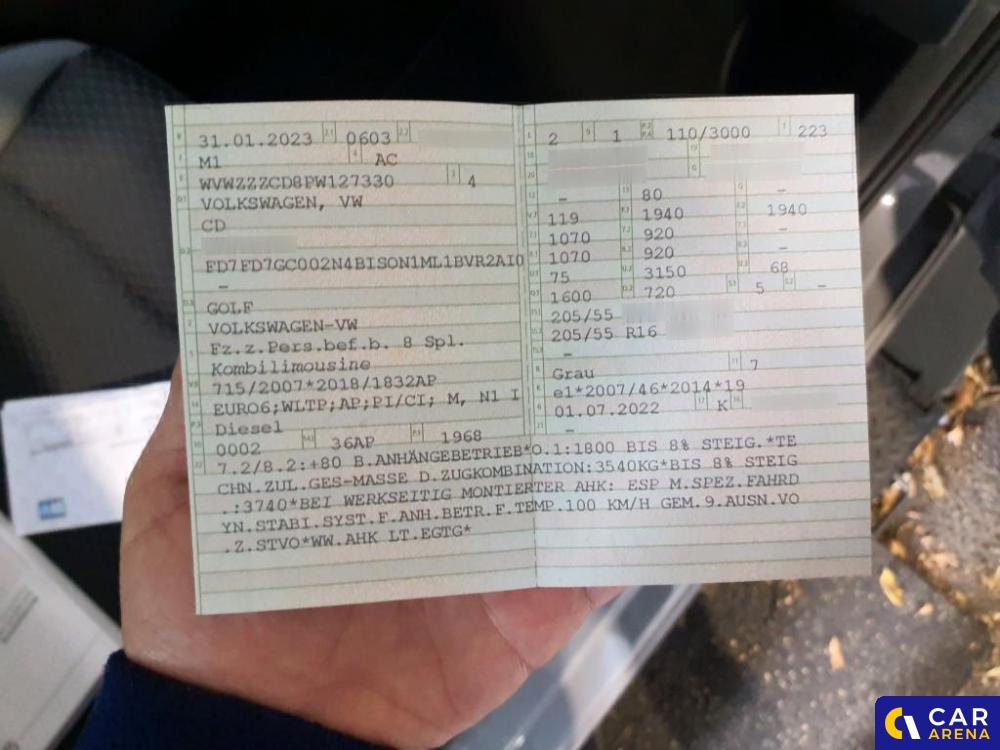 31.01.2023 0603
M1 AC
WVWZZZCD8PW127330 4
VOLKSWAGEN, VW
CD
FD7FD7GC002N4BISON1ML1BVR2AI0
–
GOLF
VOLKSWAGEN-VW
Fz.z.Pers.bef.b. 8 Spl.
Kombilimousine
715/2007*2018/1832AP
EURO6;WLTP;AP;PI/CI; M, N1 I
Diesel
0002 36AP 1968
2 1 110/3000 223
– 80 –
119 1940 1940
1070 920 –
1070 920 –
75 3150 68
1600 720 5 –
205/55
205/55 R16
–
Grau 7
e1*2007/46*2014*19
01.07.2022 K
–
7.2/8.2:+80 B.ANHÄNGEBETRIEB*O.1:1800 BIS 8% STEIG.*TE
CHN.ZUL.GES-MASSE D.ZUGKOMBINATION:3540KG*BIS 8% STEIG
.:3740*BEI WERKSEITIG MONTIERTER AHK: ESP M.SPEZ.FAHRD
YN.STABI.SYST.F.ANH.BETR.F.TEMP.100 KM/H GEM.9.AUSN.VO
.Z.STVO*WW.AHK LT.EGTG*
CAR
ARENA